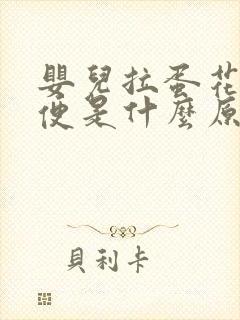 嬰兒拉蛋花
便是什麼原
貝利卡